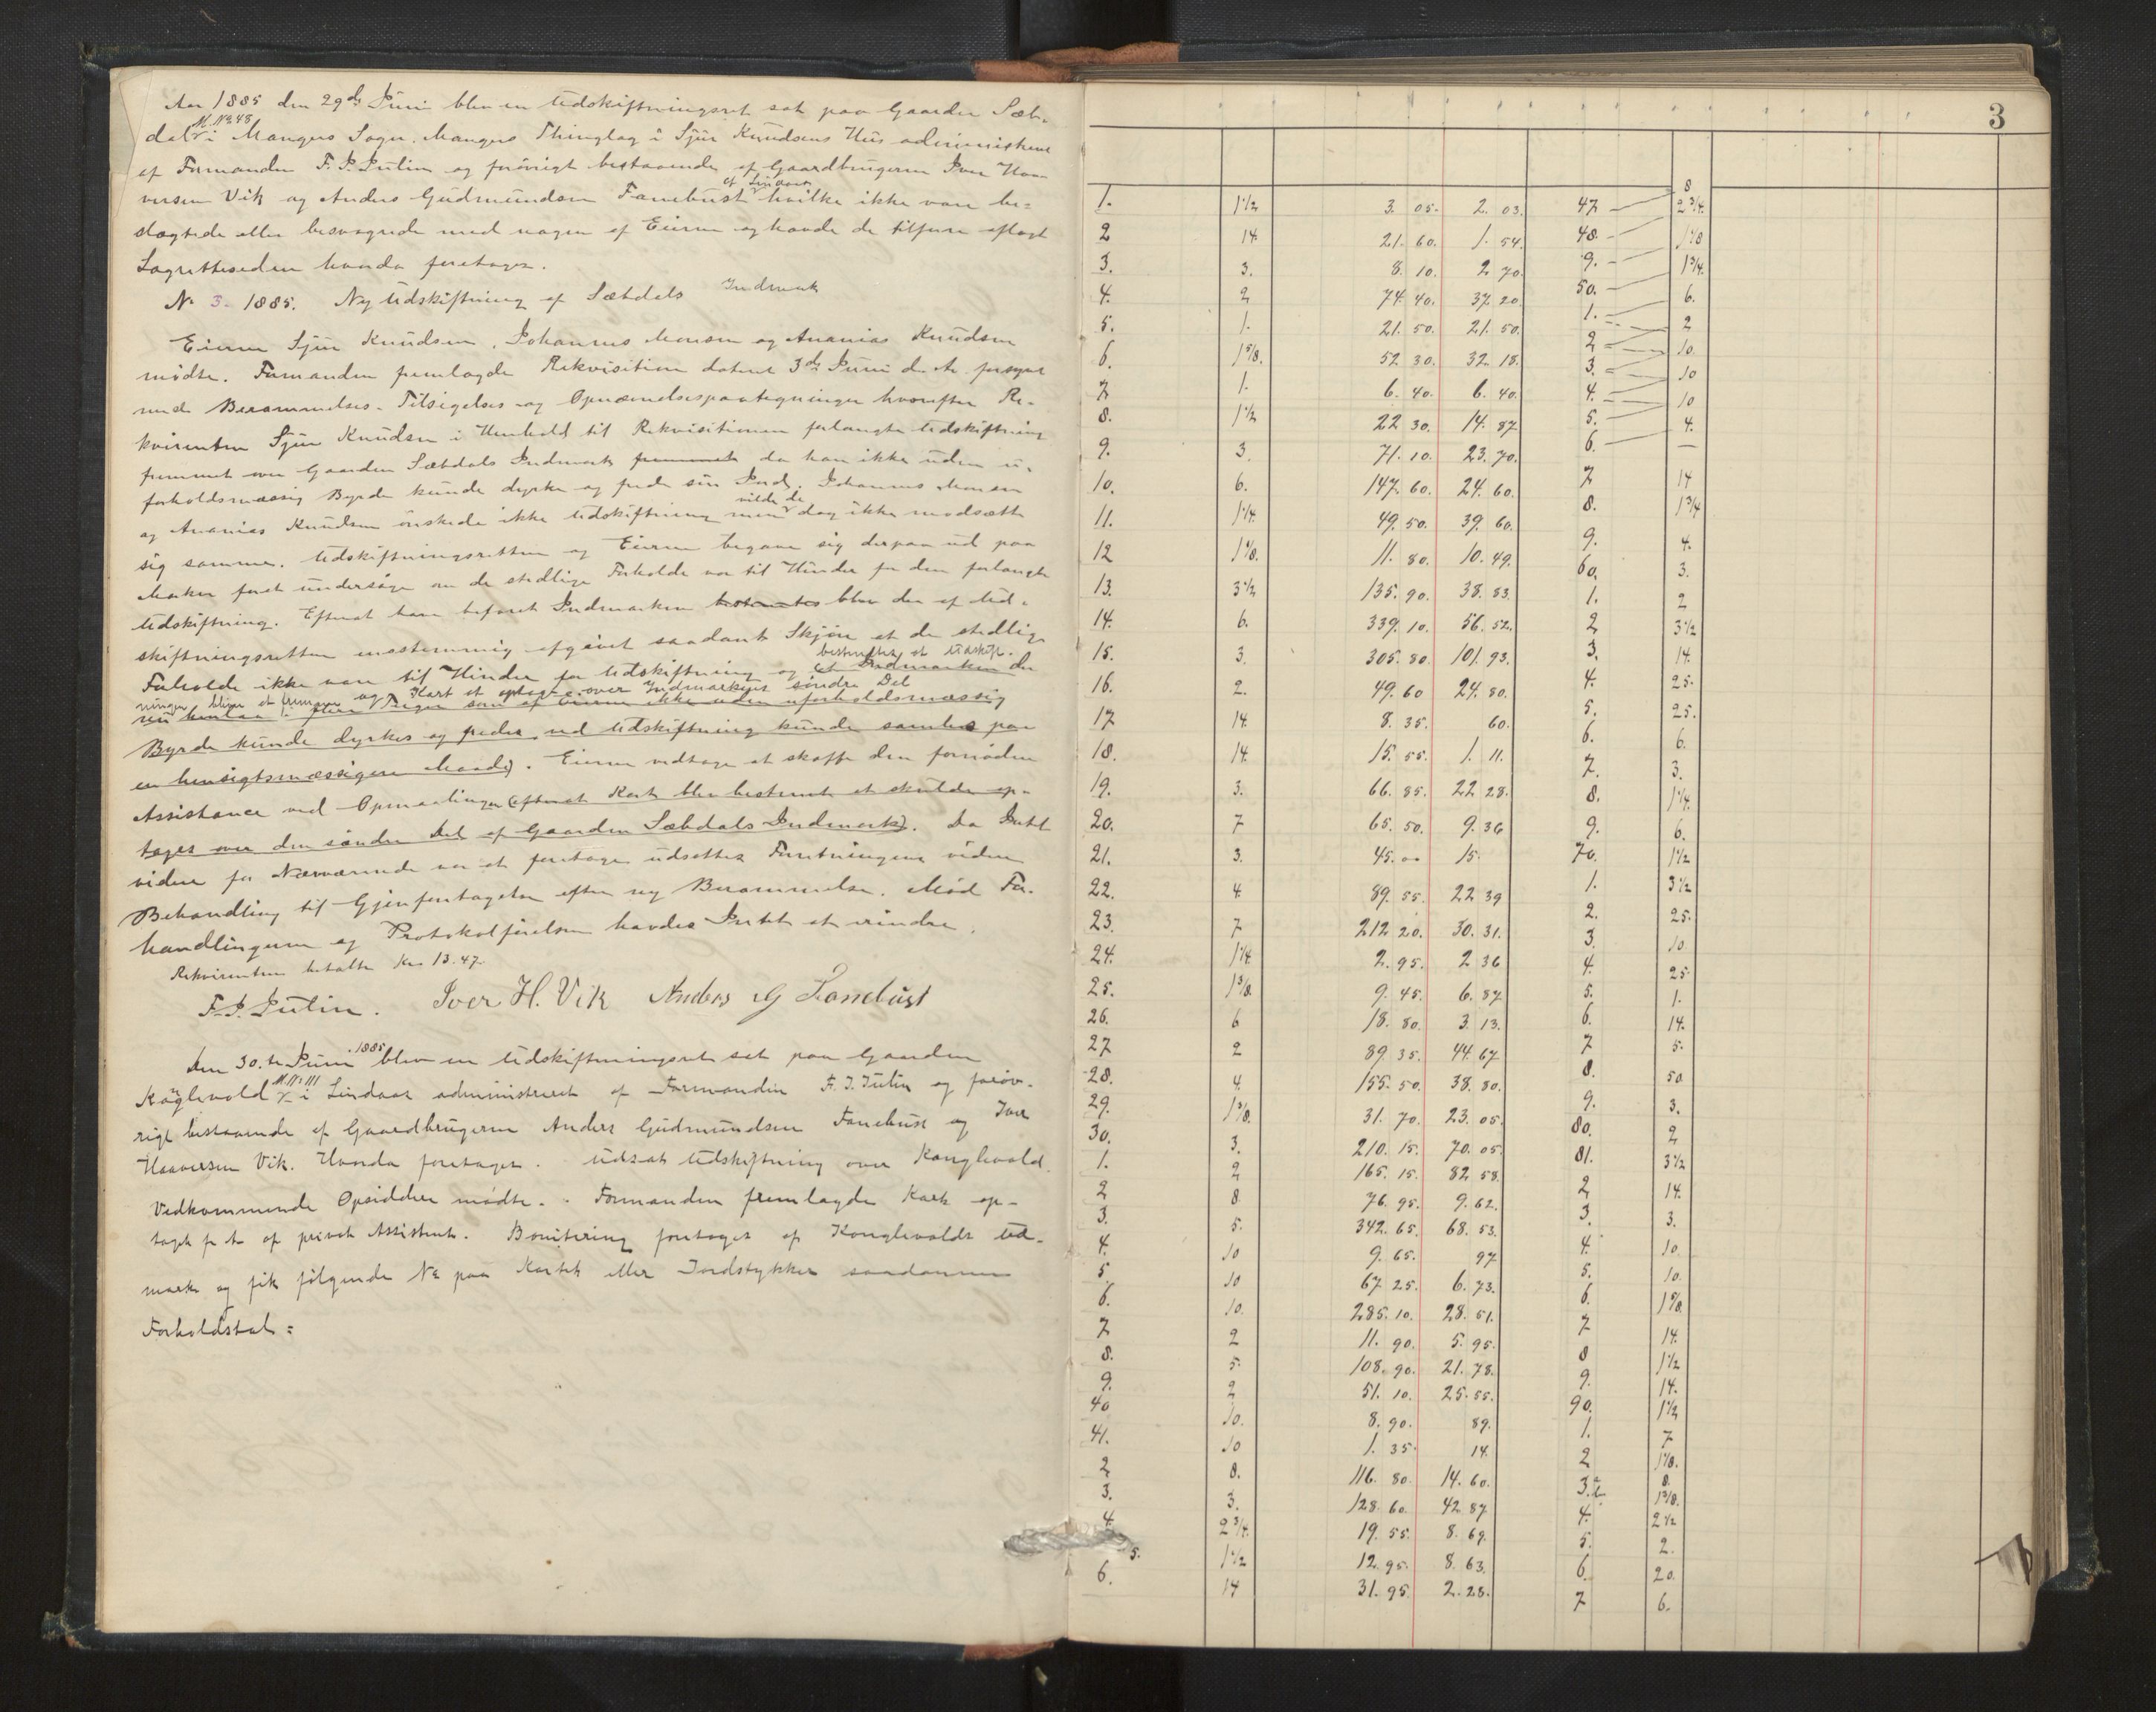 Aar 1885 den 29de Juni blev en Udskiftningsret sat paa Gaarden Sæb-
dal M. No 48 i Mangers Sogn, Mangers Thinglag i Sjur Knudsens Hus administreret
af Formanden F. J. Jutin og forøvrigt bestaaende af Gaardbrugerne Iver Haa-
versen Vik og Anders Gudmundsen Fanebust af Lindaas hvilke ikke vare be-
slægtede eller besvogrede med nogen af Eierne og havde de tilforn aflagt
Lagretteseden hvorda foretoges.
No 3. 1885. Ny Udskiftning af Sæbdals Indmark
Eierne Sjur Knudsen, Johannes Monsen og Ananias Knudsen
mødte. Formanden fremlagde Rekvisition dateret 3de Juni d. A. forsynet
med Berammelses- Tilsigelses- og Opnævnelsespaategninger hvorefter Re-
kvirenten Sjur Knudsen i Henhold til Rekvisitionen forlangte Udskiftning
fremmet over Gaarden Sæbdals Indmark fremmet da han ikke uden u-
forholdsmæssig Byrde kunde dyrke og frede sin Jord. Johannes Monsen
og Ananias Knudsen ønskede ikke Udskiftning men vilde de dog ikke modsætte
sig samme. Udskiftningsretten og Eierne begave sig derpaa ud paa
Marken foret undersøge om de stedlige Forholde var til Hinder for den forlangte
Udskiftning. Efterat have befaret Indmarken blev der af Ud-
skiftningsretten enstemmig afgivet saadant Skjøn at de stedlige
Forholde ikke vare til Hinder for Udskiftning og bestemtes at Udskift- at Indmarken der
ningen bliver at fremme og Kart at optage over Indmarkens søndre Del
nu henlaa i flere Teiger som af Eierne ikke uden uforholdsmæssig
Byrde kunde dyrkes og fredes ved Udskiftning kunde samles paa
en hensigtsmæssigere Maade). Eierne vedtoge at skaffe den fornøden
Assistance ved Opmaalingen (efterat Kart blev bestemt at skulde op-
tages over den søndre Del af Gaarden Sæbdals Indmark). Da Intet
videre for Nærværende var at foretage udsattes Forretningens videre
Behandling til Gjenforetagelse efter ny Berammelse. Mod For-
handlingerne og Protokolførelsen havdes Intet at erindre.
Rekvirenten betalte Kr. 13.47.
F. J. Jutin. Iver H. Vik Anders G Fanebust
Den 30. te Juni 1885 blev en Udskiftningsret sat paa Gaarden
Konglevold M. No 111 i Lindaas administreret af Formanden F. J. Jutin og forøv-
rigt bestaaende af Gaardbrugerne Anders Gudmundsen Fanebust og Iver
Haaversen Vik. Hvorda foretoges. Udsat Udskiftning over Konglevold.
Vedkommende Opsiddere mødte. Formanden fremlagde Kart op-
taget f. A. af privat Assistent. Bonitering foretoges af Konglevolds Ud-
mark og fik følgende No paa Kartet eller Jordstykker saadanne
Forholdstal:
3
8
1. 1 1/2 3. 05. 2. 03. 47 2 3/4.
2 14. 21. 60. 1. 54. 48. 1 1/8
3. 3. 8. 10. 2 70. 9. 1 3/4.
4. 2 74. 40. 37. 20. 50. 6.
5. 1. 21. 50. 21. 50. 1. 2
6. 1 5/8. 52 30. 32. 18. 2 10.
7 1. 6. 40. 6. 40. 3. 10
8. 1 1/2 22 30. 14. 87 4. 10
9. 3. 71. 10. 23. 70. 5. 4.
10. 6. 147. 60. 24. 60. 6. —
11. 1 1/4. 49. 50. 39. 60. 7 14
12 1 1/8. 11. 80. 10. 49. 8. 1 3/4
13. 3 1/2 135. 90. 38. 83. 9. 4.
14. 6. 339. 10. 56. 52. 60. 3.
15. 3. 305. 80. 101. 93. 1. 2
16. 2. 49. 60 24. 80. 2 3 1/2
17 14. 8. 35. 60. 3. 14.
18. 14. 15. 55. 1. 11. 4. 25.
19. 3. 66. 85. 22 28. 5. 25.
20. 7 65. 50. 9. 36 6. 6.
21. 3. 45. 00 15. 7. 3.
22. 4. 89. 55. 22 39 8. 1 1/4.
23. 7 212 20. 30. 31. 9. 6.
24. 1 1/4. 2. 95. 2 36 70. 1 1/2
25. 1 3/8. 9. 45. 6. 87. 1. 3 1/2
26. 6 18. 80. 3. 13. 2. 25.
27 2 89. 35. 44. 67 3. 10.
28. 4. 155. 50. 38. 80. 4. 25.
29. 1 3/8. 31. 70. 23. 05. 5. 1.
30. 3. 210. 15. 70. 05. 6. 14.
1. 2 165. 15. 82 58. 7 5.
2 8 76. 95. 9. 62. 8. 50.
3. 5. 342. 65. 68. 53. 9. 3.
4. 10 9. 65. 97 80. 2
5. 10 67 25. 6. 73. 81. 3 1/2
6. 10. 285. 10. 28. 51. 2 14.
7 2 11. 90. 5. 95. 3. 3.
8. 5. 108. 90. 21. 78. 4. 10.
9. 2 51. 10. 25. 55. 5. 10.
40 10. 8. 90. 89. 6. 1 5/8.
41. 10 1. 35. 14. 7 14.
2 8. 116. 80. 14. 60. 8 1 1/2
3. 3. 128. 60. 42 87. 9. 14.
4. 2 3/4. 19. 55. 8. 69. 90. 1 1/2
5. 1 1/2 12. 95. 8. 63. 1. 7
6. 14 31. 95. 2. 28. 2 1 1/8.
3. a 8.
b. 1 3/8.
4. 2 1/2
5. 2.
6. 20.
7 6.